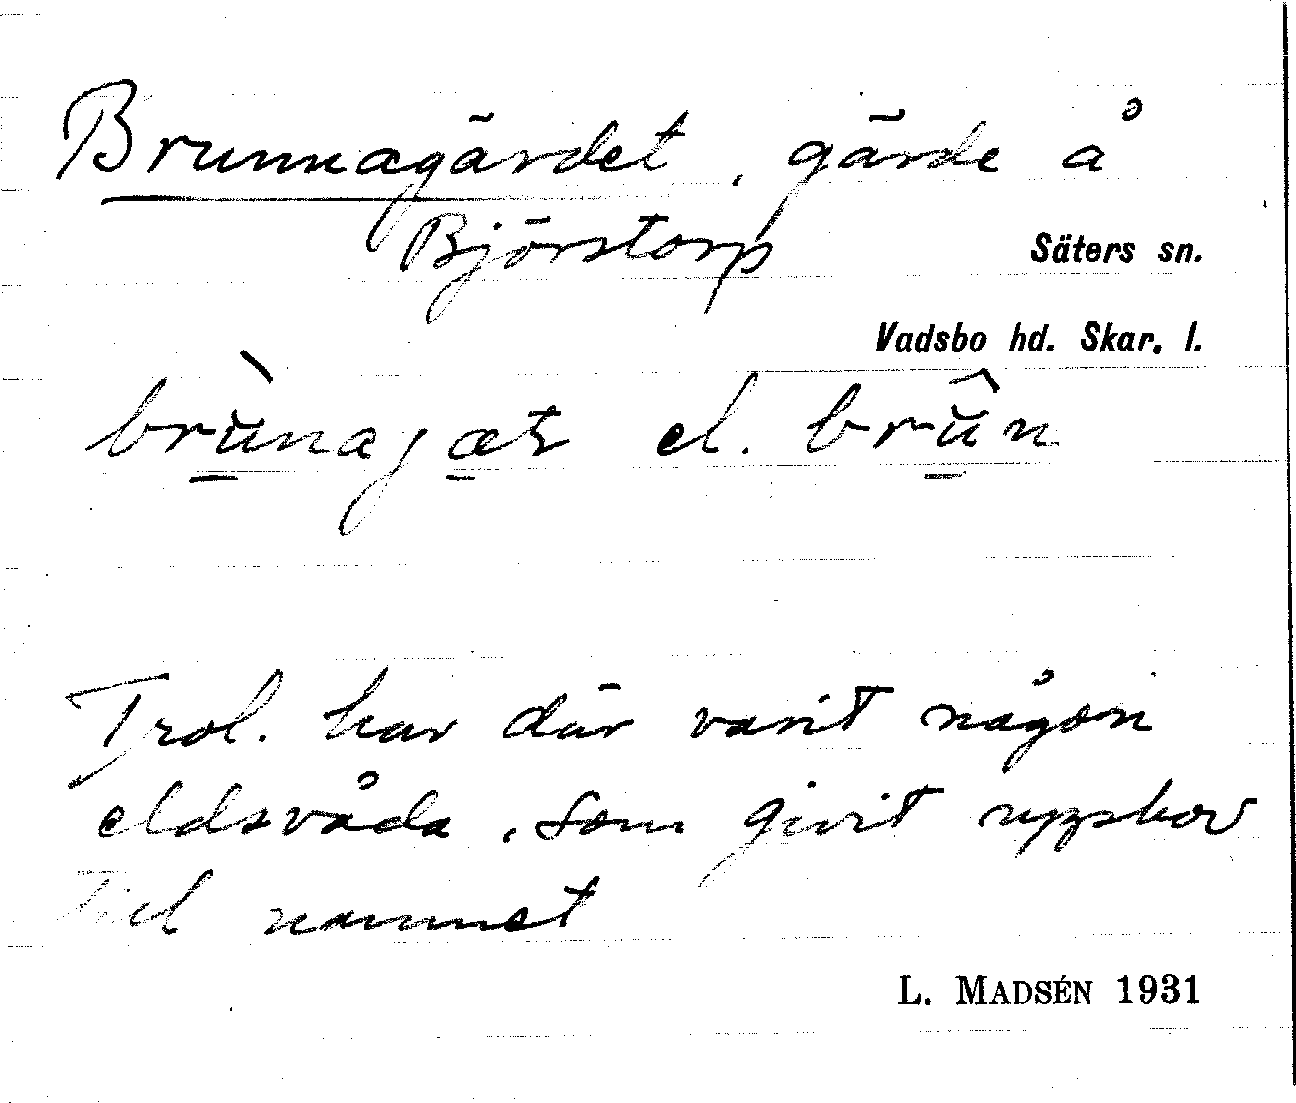 Brunnagärdet, gärde å
Björstorp
Säters sn.
Vadsbo hd. Skar. l.
el.
Trol. har där varit någon
eldsvåda, som givit uppkov
till namnet
L. MADSÉN 1931